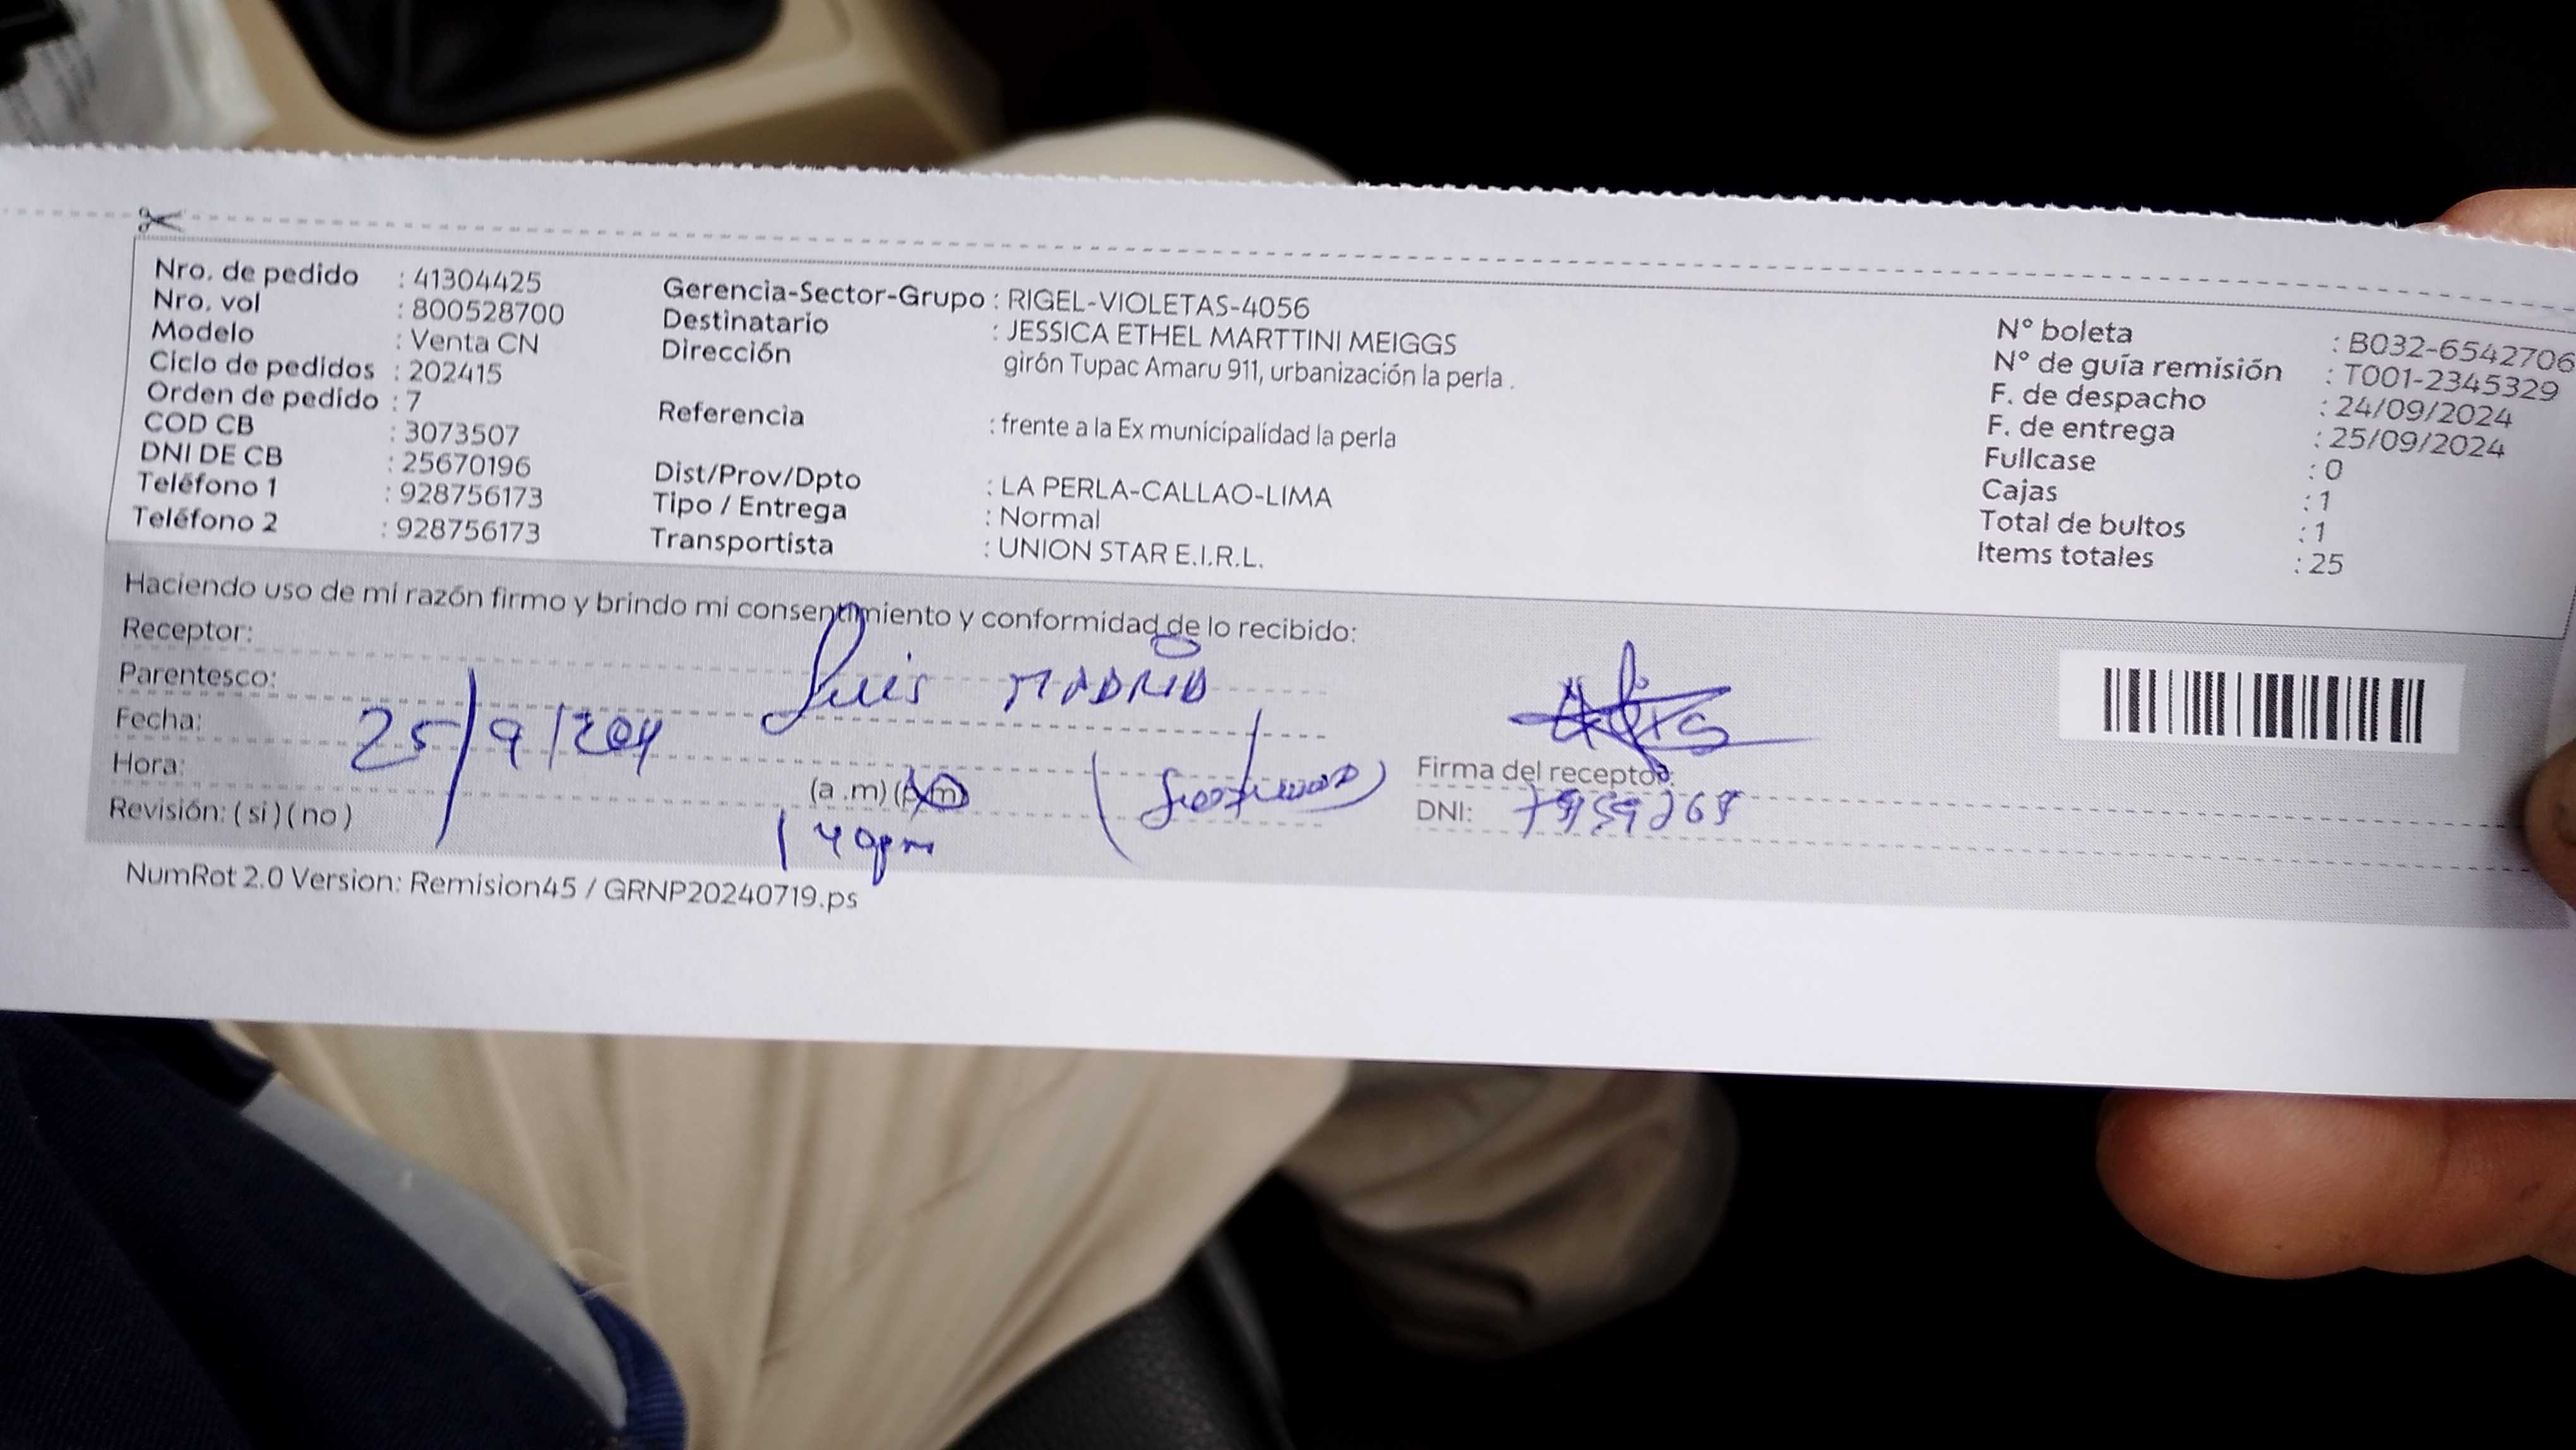 Nro. de pedido : 41304425
Nro. vol : 800528700
Modelo : Venta CN
Ciclo de pedidos : 202415
Orden de pedido : 7
COD CB : 3073507
DNI DE CB : 25670196
Teléfono 1 : 928756173
Teléfono 2 : 928756173
Gerencia-Sector-Grupo : RIGEL-VIOLETAS-4056
Destinatario : JESSICA ETHEL MARTTINI MEIGGS
Dirección girón Tupac Amaru 911, urbanización la perla .
Referencia : frente a la Ex municipalidad la perla
Dist/Prov/Dpto : LA PERLA-CALLAO-LIMA
Tipo / Entrega : Normal
Transportista : UNION STAR E.I.R.L.
N° boleta : B032-6542706
N° de guía remisión : T001-2345329
F. de despacho : 24/09/2024
F. de entrega : 25/09/2024
Fullcase : 0
Cajas : 1
Total de bultos : 1
Items totales : 25
Haciendo uso de mi razón firmo y brindo mi consentimiento y conformidad de lo recibido:
Receptor:
Luis MADRID
Parentesco:
Fecha: 25/9/
Hora: (a .m) (p.m)
1 40pm
Revisión: ( si ) ( no )
Firma del receptor:
DNI:
NumRot 2.0 Version: Remision45 / GRNP20240719.ps